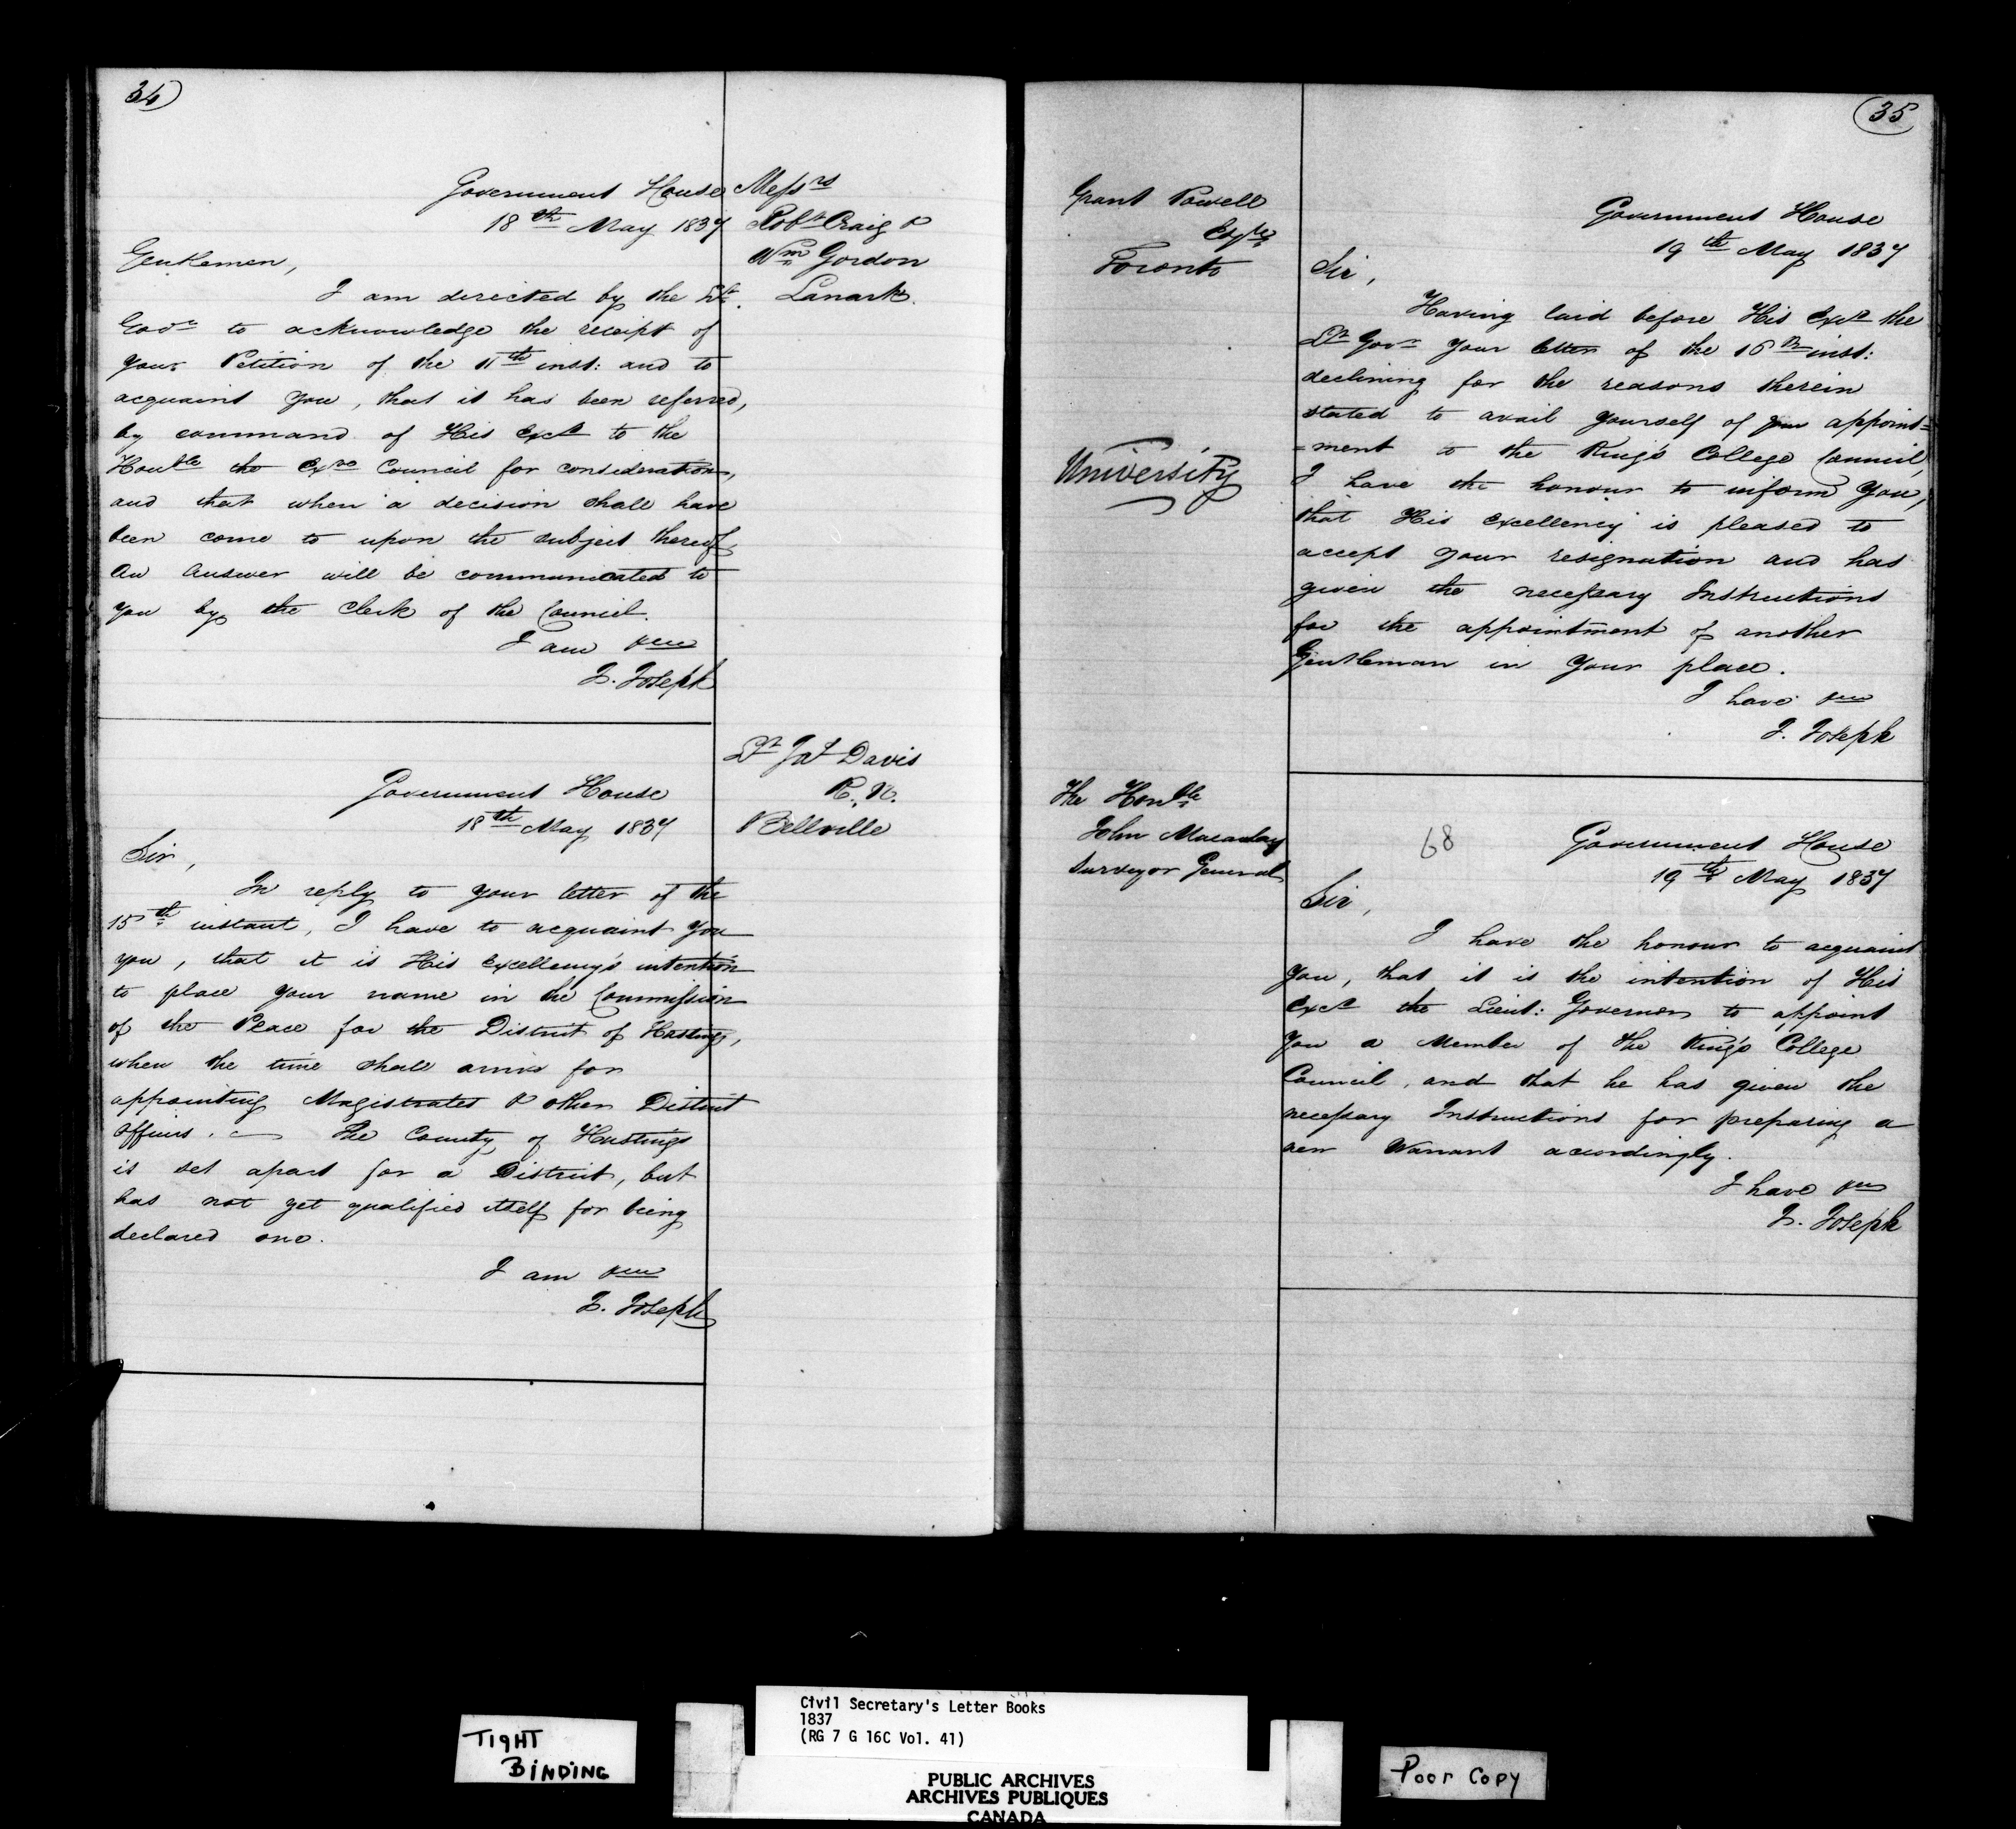 34
Government House
18th May 1837
Messrs
Robt Craig &
Wm Gordon
Lanark.
Gentlemen,
I am directed by the Lt.
Govr to acknowledge the receipt of
your Petition of the 11th inst: and to
acquaint you, that it has been referred,
by command of His Excy to the
Honble the Exve Council for consideration,
and that when a decision shall have
been come to upon the subject thereof,
an answer will be communicated to
you by the Clerk of the Council.
I am &c
J. Joseph
Lt Jas Davis
R. N.
Bellville
Government House
18th May 1837
Sir,
In reply to your letter of the
15th instant, I have to acquaint you
you, that it is His Excellency's intention
to place your name in the Commission
of the Peace for the District of Hastings,
when the time shall arrive for
appointing Magistrates & other District
Officers. — The County of Hastings
is set apart for a District, but
has not yet qualified itself for being
declared one.
I am &c
J. Joseph
35
Grant Powell
Esqre
Toronto
University
Government House
19th May 1837
Sir,
Having laid before His Excy the
Lt Govr your letter of the 16th inst:
declining for the reasons therein
stated to avail yourself of your appoint=
=ment to the King's College Council,
I have the honour to inform you,
that His Excellency is pleased to
accept your resignation and has
given the necessary Instructions
for the appointment of another
Gentleman in your place.
I have &c
J. Joseph
The Honble
John Macaulay
Surveyor General
68
Government House
19th May 1837
Sir,
I have the honour to acquaint
you, that it is the intention of His
Excy the Lieut: Governor to appoint
you a Member of the King's College
Council, and that he has given the
necessary Instructions for preparing a
new Warrant accordingly.
I have &c
J. Joseph
TIGHT
BINDING
Civil Secretary's Letter Books
1837
(RG 7 G 16C Vol. 41)
PUBLIC ARCHIVES
ARCHIVES PUBLIQUES
CANADA
Poor Copy